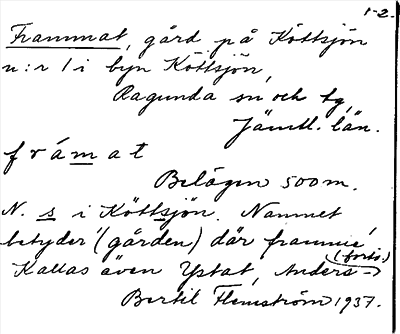 1-2.
Frammat, gård på Köttsjön
n:r 1 i byn Köttsjön,
Ragunda sn och tg,
Jämtl. län.
f r á m a t
Belägen 500 m.
N. s i Köttsjön. Namnet
betyder "(gården) där framme".
(forts.)
Kallas även Ystat, Anders-
Bertil Flemström 1937.